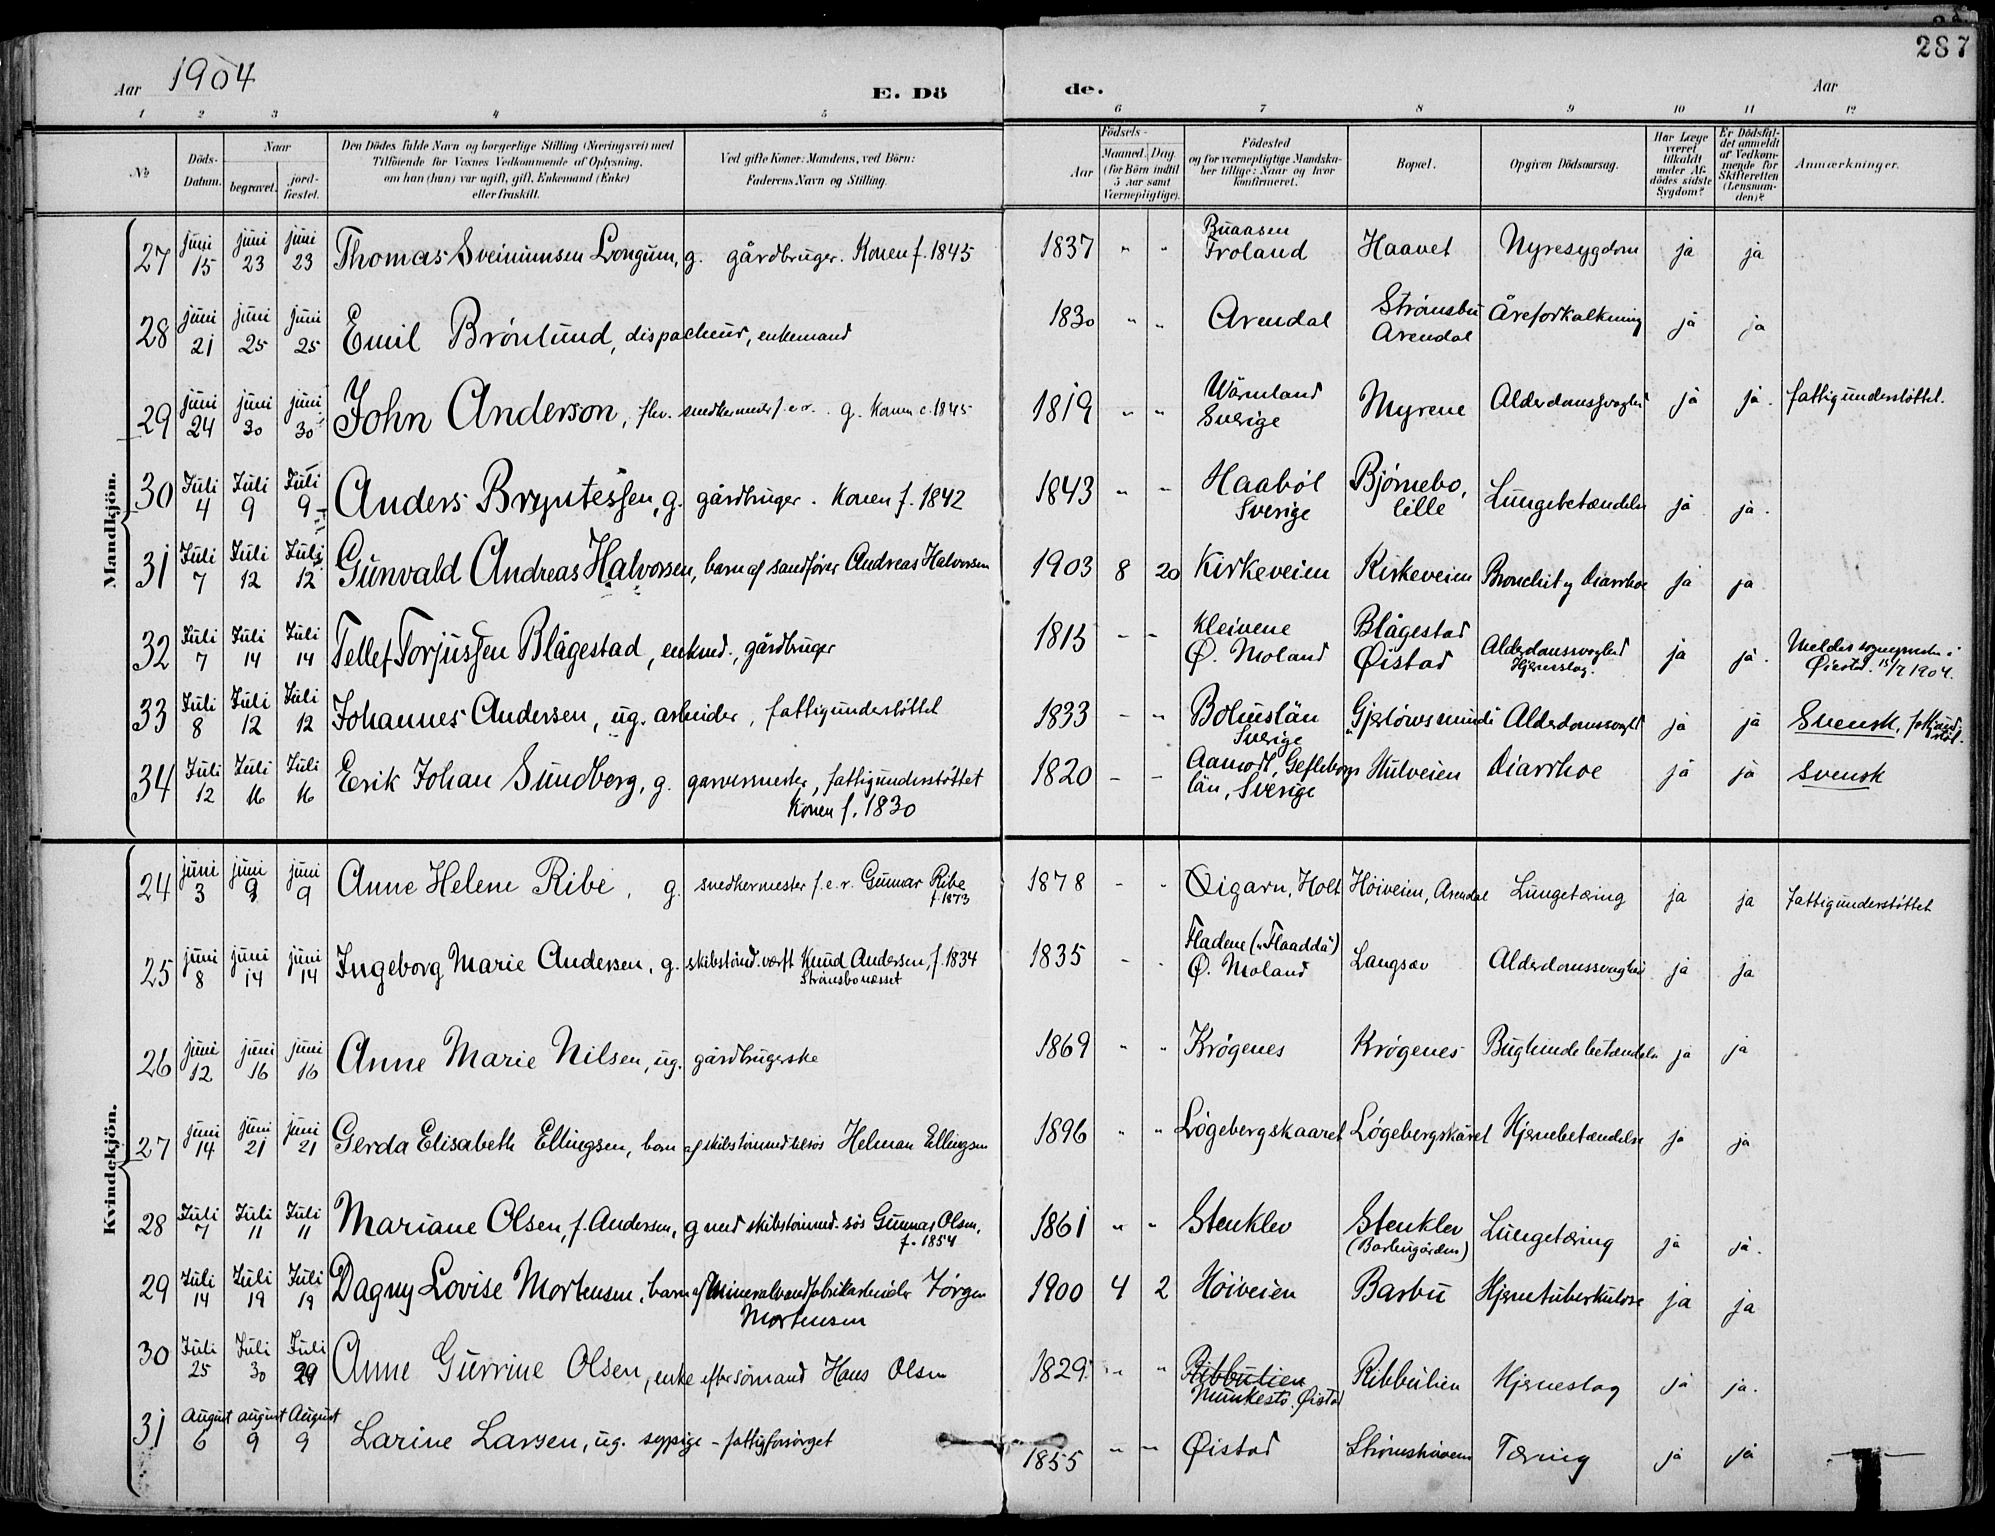 287
Aar 1904
E. Dö de.
Aar
1 2 3 4 5 6 7 8 9 10 11 12
No
Döds-Datum.
Naar
begravet.
jord-fæstet.
Den Dödes fulde Navn og borgerlige Stilling (Næringsvei) med
Tilföiende for Voxnes Vedkommende af Oplysning,
om han (hun) var ugift, gift, Enkemand (Enke)
eller fraskilt.
Ved gifte Koner: Mandens, ved Börn:
Faderens Navn og Stilling.
Födsels-
Aar
Maaned. Dag.
(for Börn indtil
5 Aar samt
Værnepligtige).
Födested
og for værnepligtige Mandska-
ber tillige: Naar og hvor
konfirmeret.
Bopæl.
Opgiven Dödsaarsag.
Har Læge
været
tilkaldt
under Af-
dödes sidste
Sygdom?
Er Dödsfal-
det anmeldt
af Vedkom-
mende for
Skifteretten
(Lensman-
den)?
Anmærkninger.
Mandkjön.
27 juni 15 juni 23 juni 23 Thomas Sveinunsen Longum, g. gårdbruger. Konen f. 1845 1837 " " Buaasen Froland Haavet Nyresygdom ja ja
28 juni 21 juni 25 juni 25 Emil Brönlund, dispacheur, enkemand 1830 " " Arendal Strömsbu Arendal Åreforkalkning ja ja
29 juni 24 juni 30 juni 30 John Anderson, flv. snedkermester f.e.r. g. Konen c. 1845 1819 " " Wärmland Sverige Myrene Alderdomssvaghed ja ja. fattigunderstöttet.
30 Juli 4 Juli 9 Juli 9 Anders Bryntessen, g. gårdbruger. Konen f. 1842 1843 " " Haaböl Sverige Bjørnebo, lille Lungebetændelse ja ja.
31 Juli 7 Juli 12 Juli 12 Gunvald Andreas Halvorsen, barn af sandfører Andreas Halvorsen 1903 8 20 Kirkeveien Kirkeveien Bronchit og Diarrhoe ja ja
32 Juli 7 Juli 14 Juli 14 Tellef Torjussen Blågestad, enkmd., gårdbruger 1815 " " Kleivene Ø. Moland Blågestad Øistad Alderdomssvaghed Hjerneslag. ja ja. Meldes sognepresten i Øiestad. 15/7 1904.
33 Juli 8 Juli 12 Juli 12 Johannes Andersen, ug. arbeider, fattigunderstöttet 1833 " " Bohuslän Sverige Alderdomssvaghed ja ja Svensk,
34 Juli 12 Juli 16 Juli 16 Erik Johan Sundberg, g. garvermester, fattigunderstöttet Konen f. 1830 1820 " " Aamodt, Gefleborgs län, Sverige Hulveien Diarrhoe ja ja Svensk
Kvindekjön.
24 juni 3 juni 9 juni 9 Anne Helene Ribe, g. snedkermester f.e.r. Gunnar Ribe f. 1873 1878 " " Øigarn, Holt Höiveien, Arendal Lungetæring ja ja fattigunderstöttet
25 juni 8 juni 14 juni 14 Ingeborg Marie Andersen, g. skibstømd. værft Knud Andersen, f. 1834 Strömsbonæsset 1835 " " Fladene ("Flaadda") Ø. Moland Langsæv Alderdomssvaghed ja ja
26 juni 12 juni 16 juni 16 Anne Marie Nilsen, ug. gårdbrugerske 1869 " " Krögenes Krögenes Bughindebetændelse ja ja
27 juni 14 juni 21 juni 21 Gerda Elisabeth Ellingsen, barn af skibstömmd tilsös Helman Ellingsen 1896 " " Lögebergskaaret Lögebergskåret Hjernebetændelse ja ja
28 Juli 7 Juli 11 Juli 11 Mariane Olsen, f. Andersen, g med skibstömmd. sös Gunnar Olsen, f. 1854 1861 " " Stenklev Stenklev Lungetæring ja ja.
29 Juli 14 Juli 19 Juli 19 Dagny Lovise Mortensen, barn af Mineralvandfabrikarbeider Jörgen Mortensen 1900 4 2 Höiveien Barbu Hjernetuberkulose ja ja
30 Juli 25 Juli 30 Juli 29 Anne Gurrine Olsen, enke efter sömand Hans Olsen 1829 " " Ribbulien Øistad Ribbulien Hjerneslag ja ja.
31 August 6 august 9 August 9 Larine Larsen, ug. sypige - fattigforsörget 1855 " " Øistad Tæring ja ja